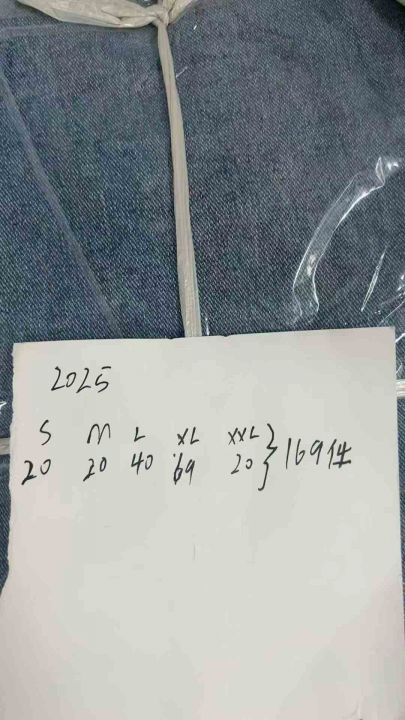 2025
S M L XL XXL
20 20 40 69 20 } 169件